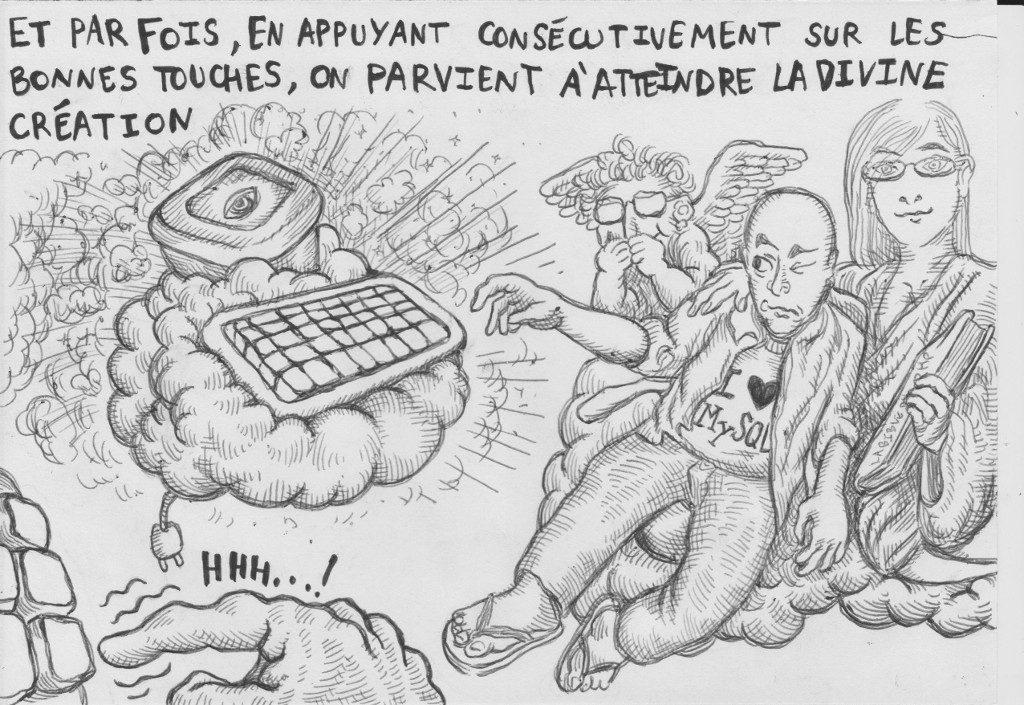 ET PARFOIS, EN APPUYANT CONSÉCUTIVEMENT SUR LES
BONNES TOUCHES, ON PARVIENT À ATTEINDRE LA DIVINE
CRÉATION
I ♥
MySQL
HHH...!